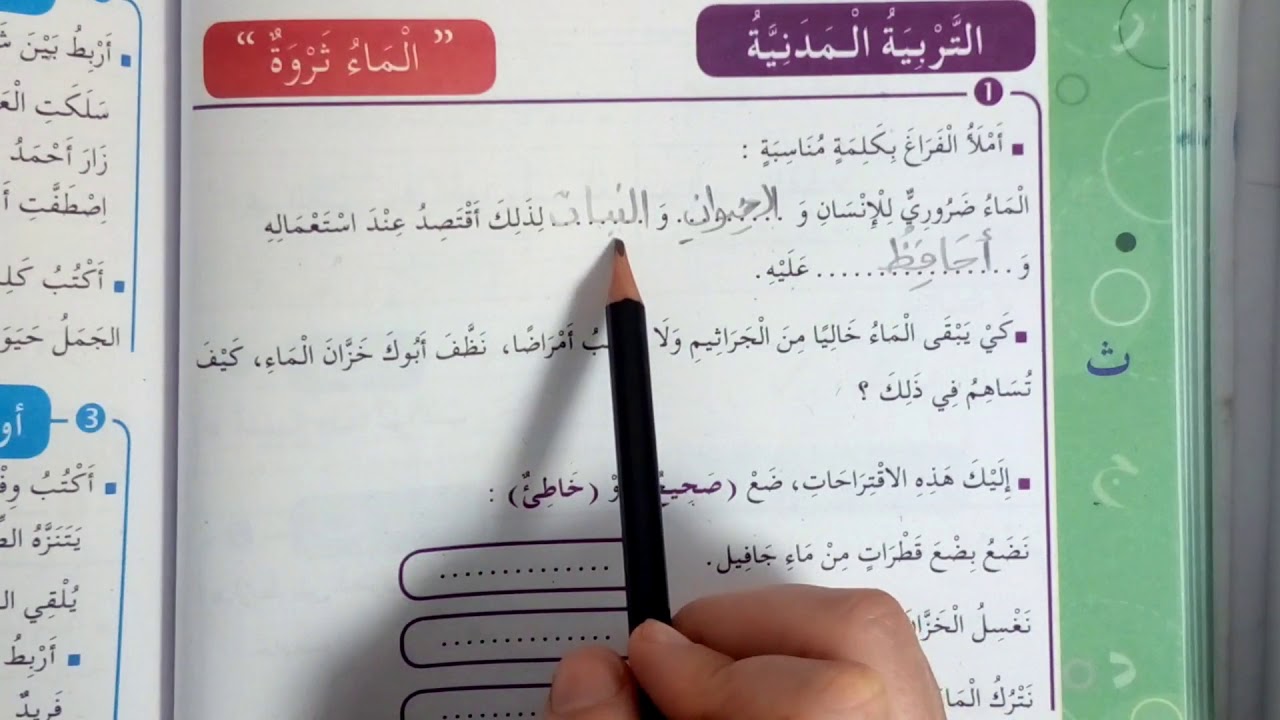 التَّرْبِيَةُ الْمَدَنِيَّةُ
” الْمَاءُ ثَرْوَةٌ “
1
أَمْلَأُ الْفَرَاغَ بِكَلِمَةٍ مُنَاسِبَةٍ :
الْمَاءُ ضَرُورِيٌّ لِلْإِنْسَانِ وَ الحيوانِ وَ النبات لِذَلِكَ أَقْتَصِدُ عِنْدَ اسْتَعْمَالِهِ
وَ أُحَافِظُ عَلَيْهِ.
كَيْ يَبْقَى الْمَاءُ خَالِيًا مِنَ الْجَرَاثِيمِ وَلَا أَمْرَاضًا، نَظَّفَ أَبُوكَ خَزَّانَ الْمَاءِ، كَيْفَ
تُسَاهِمُ فِي ذَلِكَ ؟
إِلَيْكَ هَذِهِ الاقْتِرَاحَاتِ، ضَعْ (صَحِيحٌ أَوْ (خَاطِئٌ) :
نَضَعُ بِضْعَ قَطْرَاتٍ مِنْ مَاءِ جَافِيل. ..............
نَغْسِلُ الْخَزَّانَ ..............
نَتْرُكُ الْمَاءَ
ث
د
أَرْبِطُ بَيْنَ
سَلَكَتِ
زَارَ أَحْمَدُ
اِصْطَفَّتِ
أَكْتُبُ
الجَمَلُ
3
أَكْتُبُ
يَتَنَزَّهُ
يُلْقِي
أَرْبِطُ
فَرِيدٌ